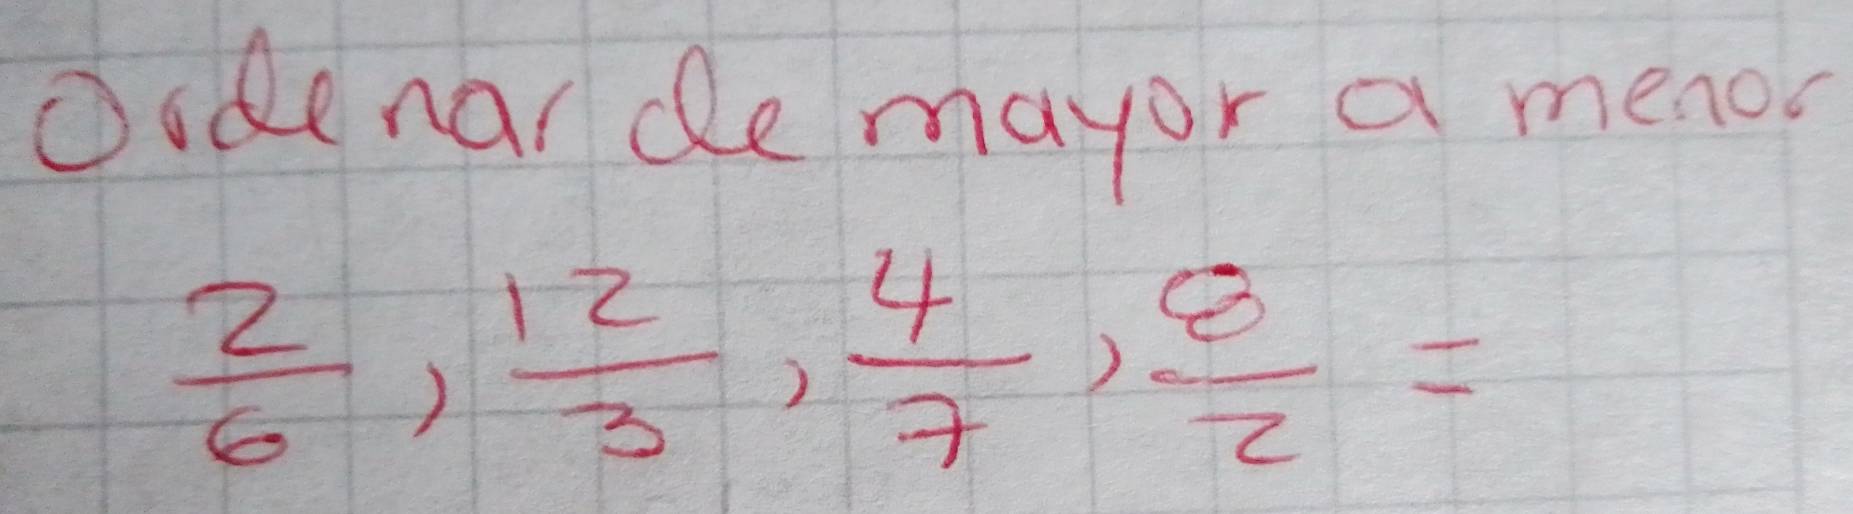 Ordenar de mayor a menor
2/6, 12/3, 4/7, 8/2 =